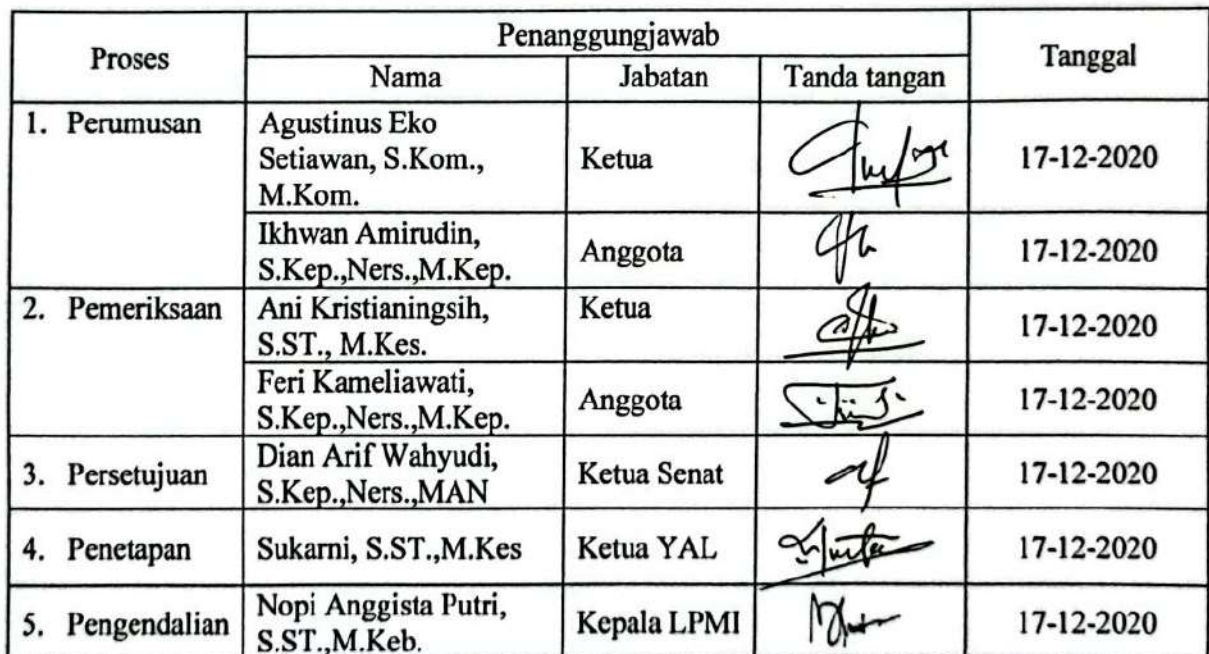 Proses
Penanggungjawab
Tanggal
Nama
Jabatan
Tanda tangan
1. Perumusan
Agustinus Eko
Setiawan, S.Kom.,
M.Kom.
Ketua
17-12-2020
Ikhwan Amirudin,
S.Kep.,Ners.,M.Kep.
Anggota
17-12-2020
2. Pemeriksaan
Ani Kristianingsih,
S.ST., M.Kes.
Ketua
17-12-2020
Feri Kameliawati,
S.Kep.,Ners.,M.Kep.
Anggota
17-12-2020
3. Persetujuan
Dian Arif Wahyudi,
S.Kep.,Ners.,MAN
Ketua Senat
17-12-2020
4. Penetapan
Sukarni, S.ST.,M.Kes
Ketua YAL
17-12-2020
5. Pengendalian
Nopi Anggista Putri,
S.ST.,M.Keb.
Kepala LPMI
17-12-2020